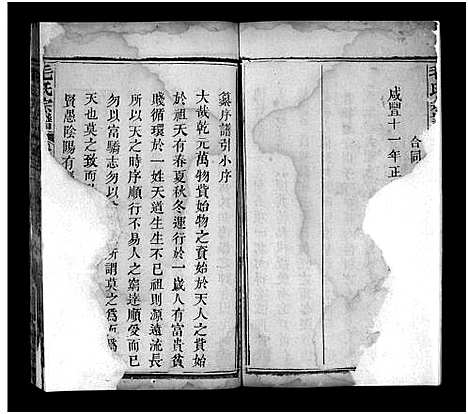 毛氏宗譜
合同
咸豐十一年正
纂序譜引小序
大哉乾元萬物資始物之資始於天人之資始
於祖天有春夏秋冬運行於一歲人有富貴貧
賤循環於一姓天道生生不已祖則源遠流長
於以天之時序順行不易人之窮達順受而已
勿以富驕志勿以
所謂莫之為而為
天也莫之致而
賢愚陰陽有
毛氏宗譜